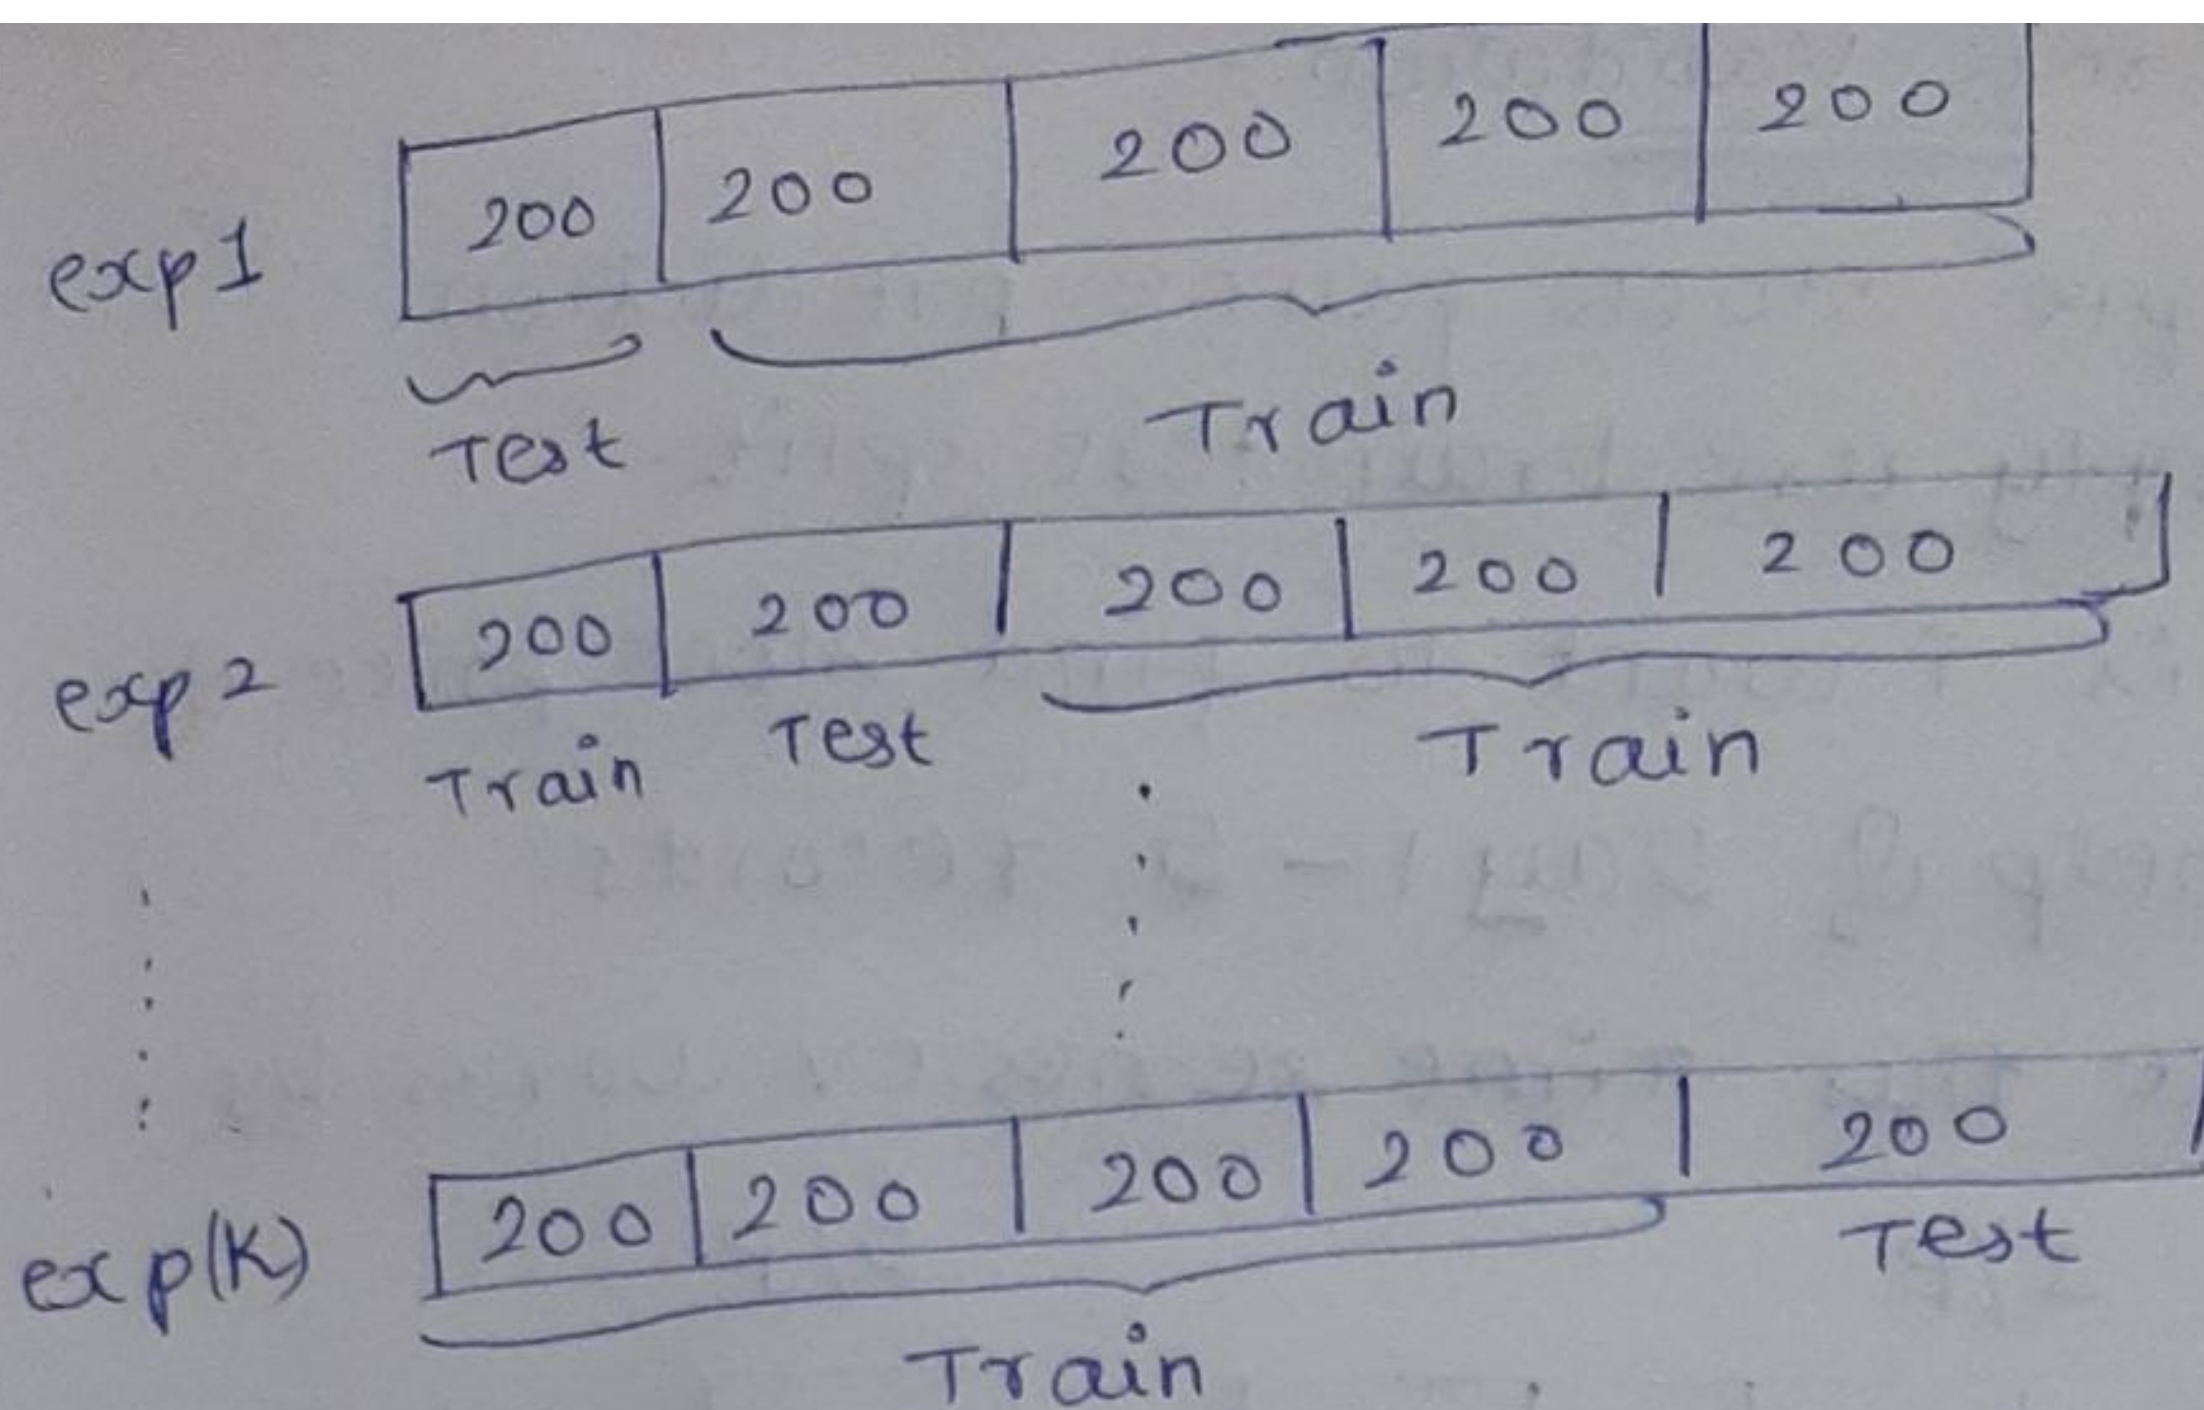 exp 1 200 200 200 200 200
Test Train
exp 2 200 200 200 200 200
Train Test Train
exp(K) 200 200 200 200 200
Train Test